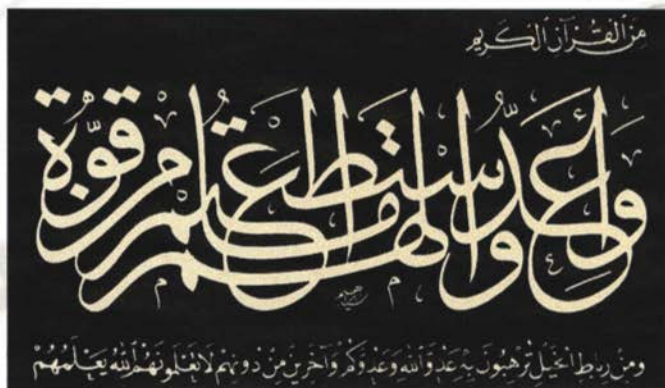 مِنَ ٱلْقُرْآنِ ٱلْكَرِيمِ
وَأَعِدُّوا لهم ما استطعتم من قُوَّة
ومن رباط الخيل ترهبون به عدو الله وعدوكم وآخرين من دونهم لا تعلمونهم الله يعلمهم